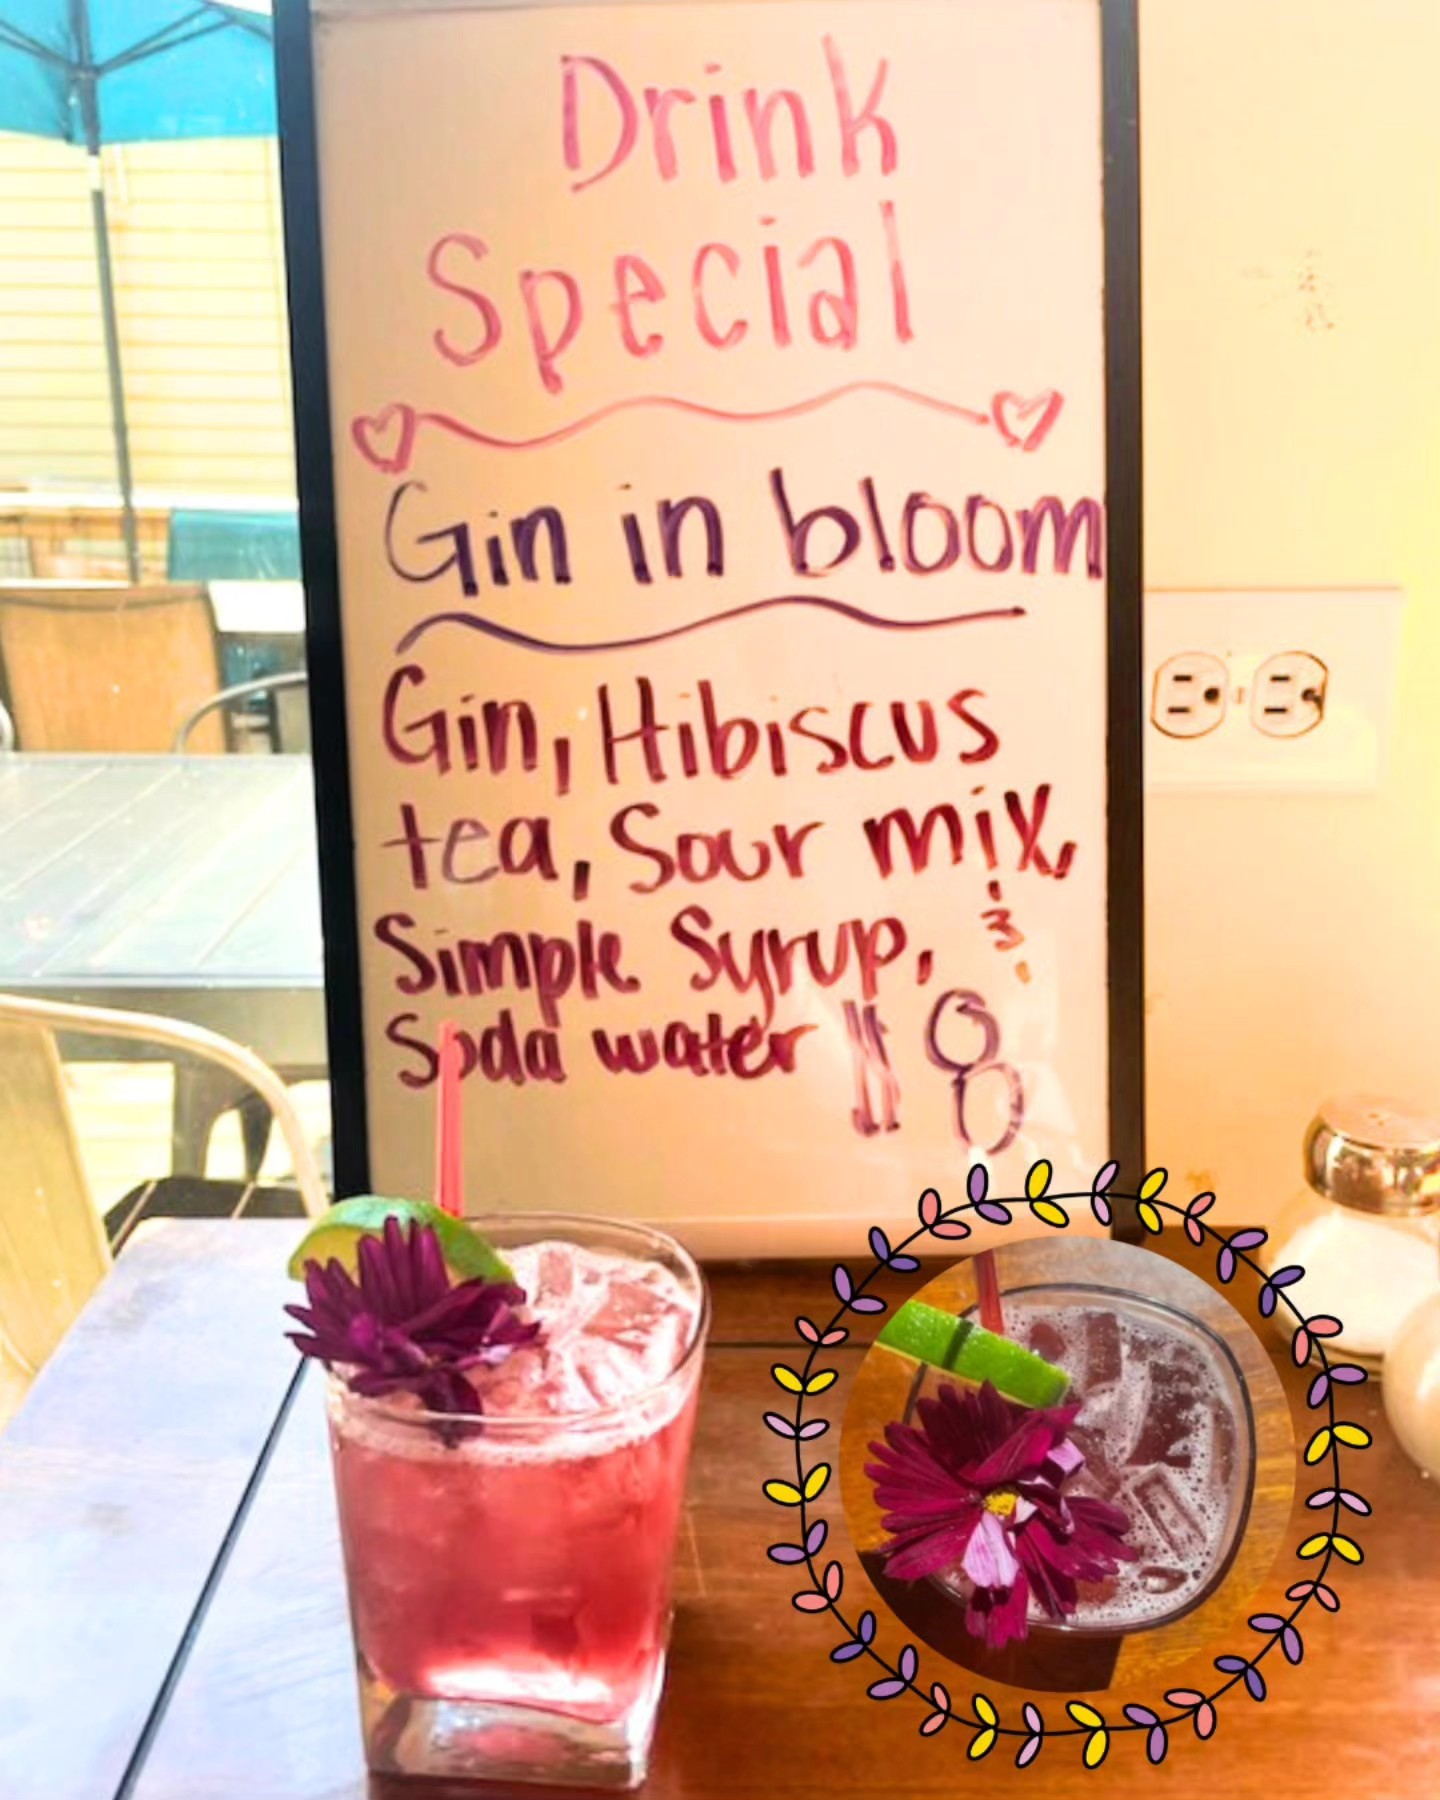 Drink
Special
Gin in bloom
Gin, Hibiscus
tea, Sour mix,
Simple Syrup, &
Soda water $8